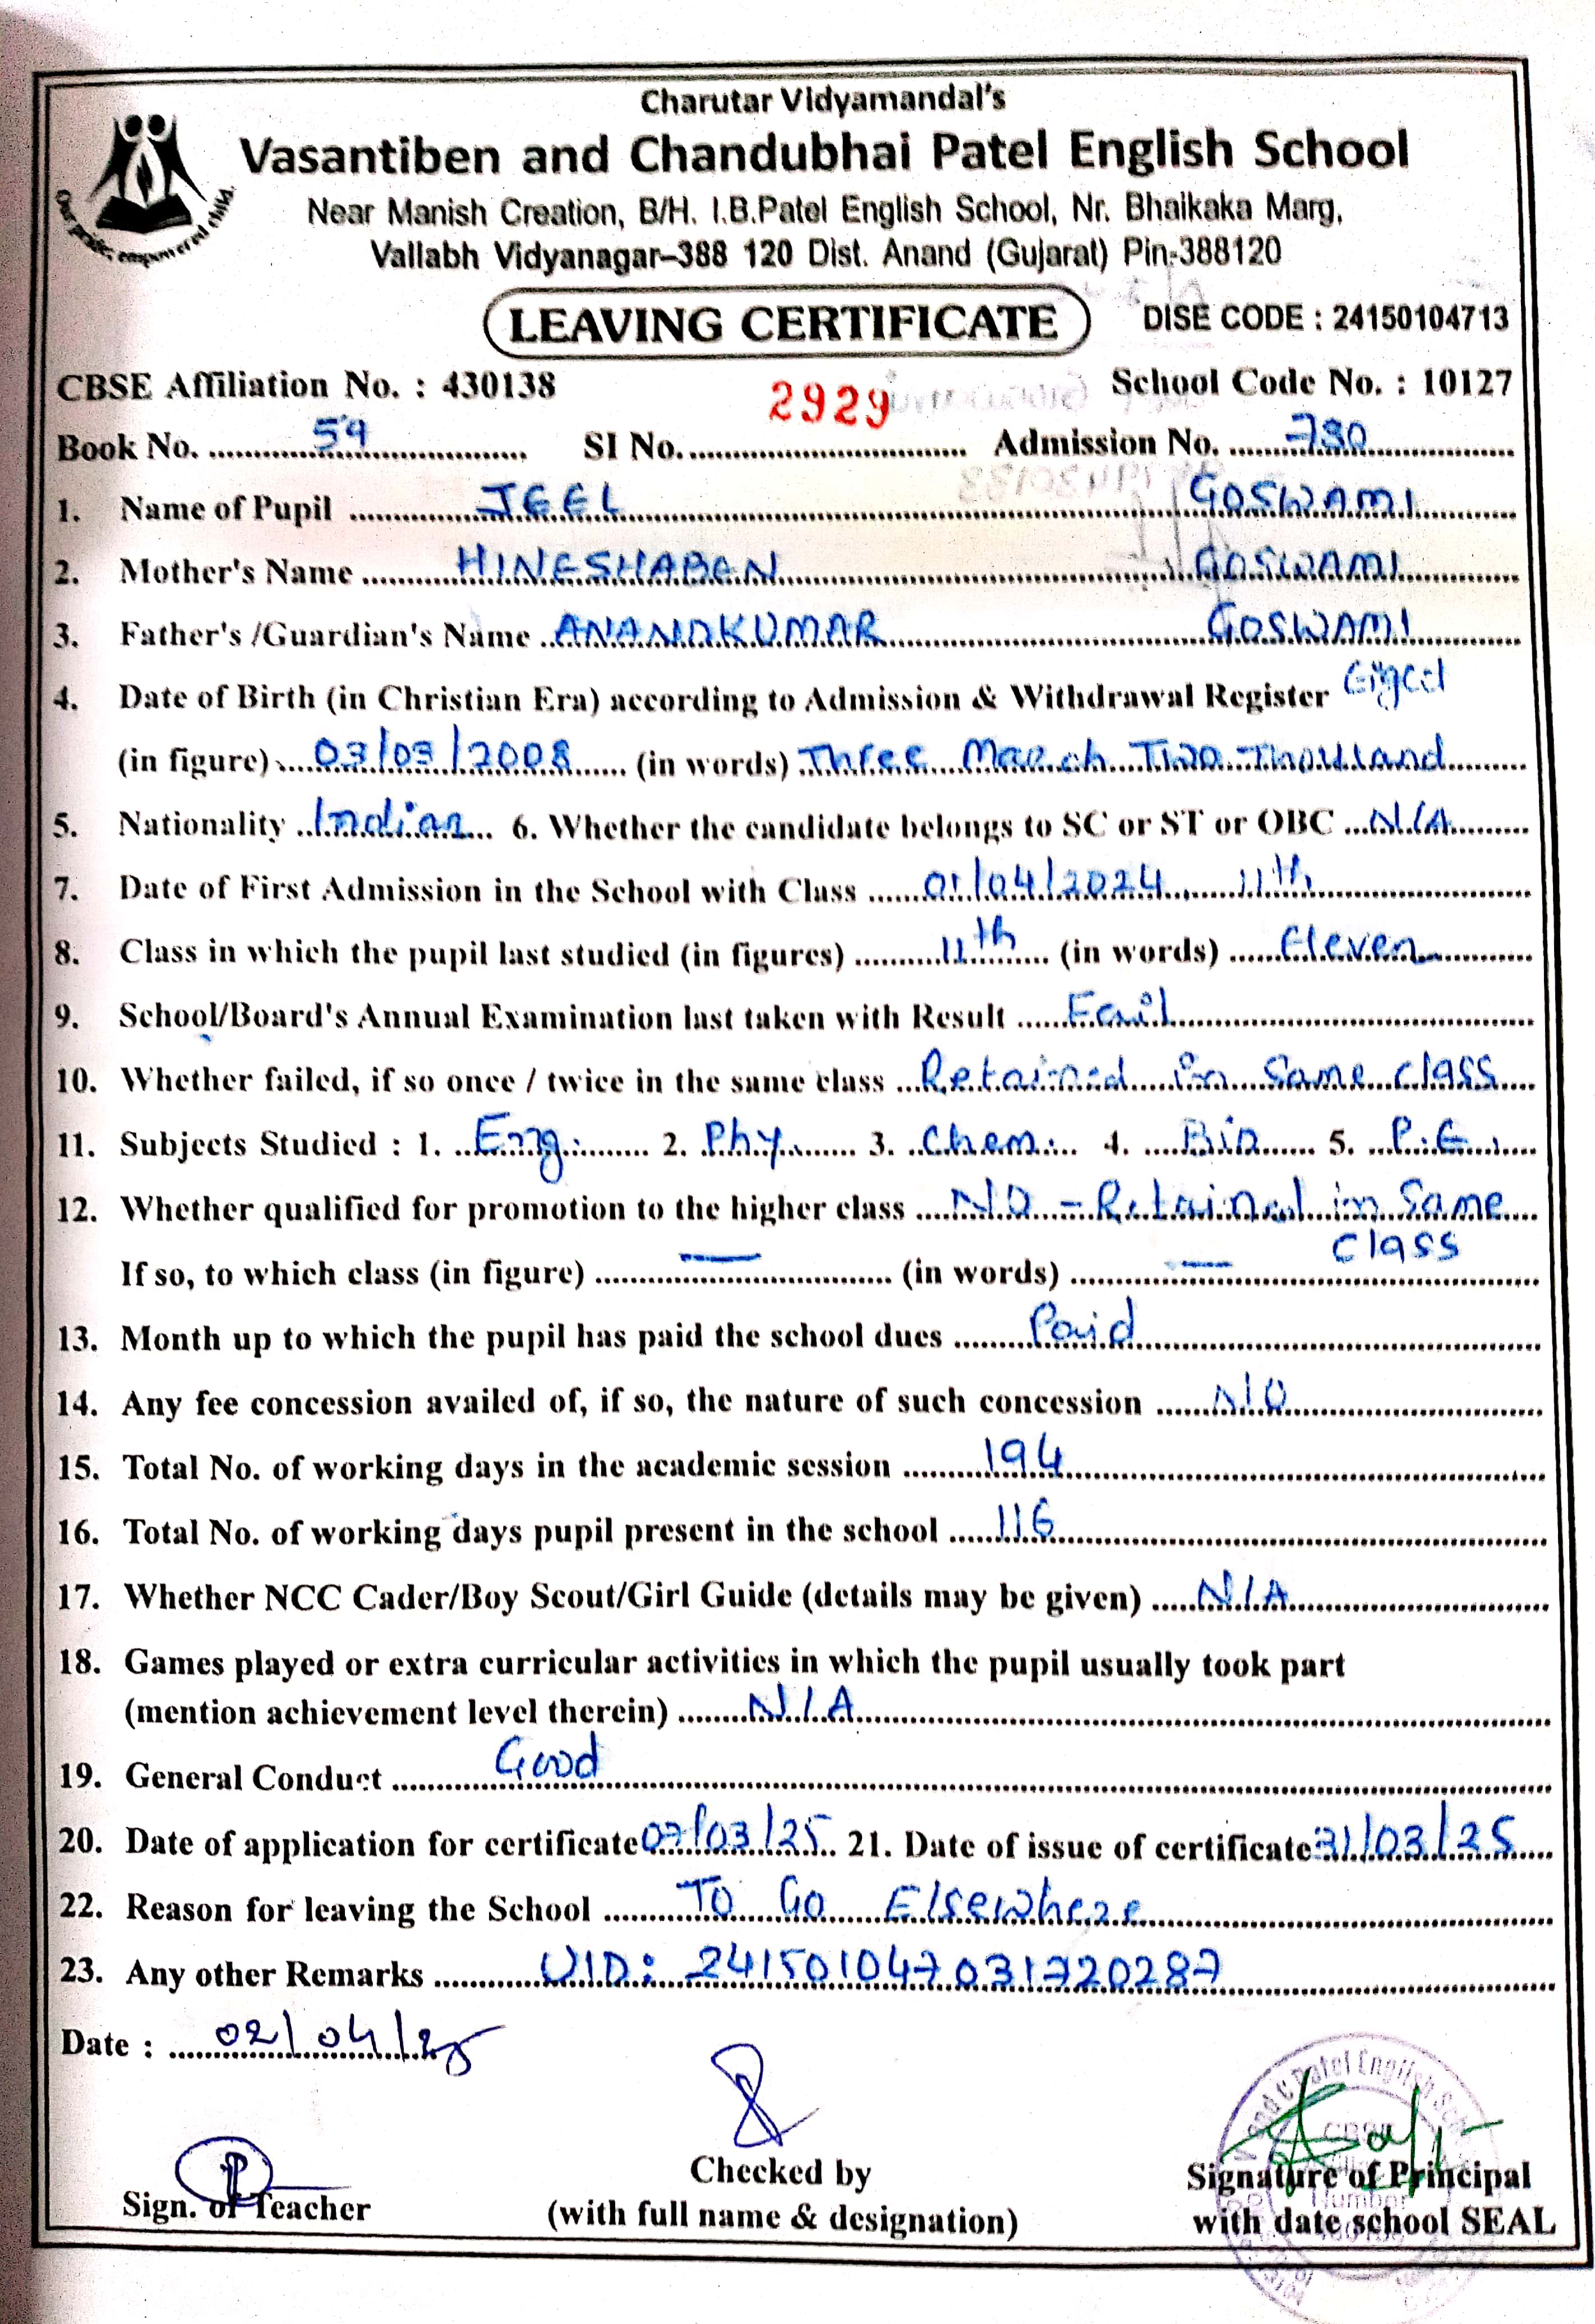 Charutar Vidyamandal's
Vasantiben and Chandubhai Patel English School
Our pride, empowered child.
Near Manish Creation, B/H. I.B.Patel English School, Nr. Bhaikaka Marg,
Vallabh Vidyanagar–388 120 Dist. Anand (Gujarat) Pin-388120
LEAVING CERTIFICATE DISE CODE : 24150104713
CBSE Affiliation No. : 430138 2929 School Code No. : 10127
Book No. 59 SI No. Admission No. 780
1. Name of Pupil JEEL GOSWAMI
2. Mother's Name HINESHABEN GOSWAMI
3. Father's /Guardian's Name ANANDKUMAR GOSWAMI
4. Date of Birth (in Christian Era) according to Admission & Withdrawal Register Eight
(in figure) 03/03/2008 (in words) Three March Two-Thousand
5. Nationality Indian 6. Whether the candidate belongs to SC or ST or OBC N/A
7. Date of First Admission in the School with Class 01/04/2024, 11th
8. Class in which the pupil last studied (in figures) 11th (in words) Eleven
9. School/Board's Annual Examination last taken with Result Fail
10. Whether failed, if so once / twice in the same class Retained in Same class
11. Subjects Studied : 1. Eng. 2. Phy. 3. Chem. 4. Bio 5. P.E.
12. Whether qualified for promotion to the higher class NO - Retained in Same
class
If so, to which class (in figure) — (in words) —
13. Month up to which the pupil has paid the school dues Paid
14. Any fee concession availed of, if so, the nature of such concession NO
15. Total No. of working days in the academic session 194
16. Total No. of working days pupil present in the school 116
17. Whether NCC Cader/Boy Scout/Girl Guide (details may be given) N/A
18. Games played or extra curricular activities in which the pupil usually took part
(mention achievement level therein) N/A
19. General Conduct Good
20. Date of application for certificate 07/03/25 21. Date of issue of certificate 31/03/25
22. Reason for leaving the School To Go Elsewhere
23. Any other Remarks UID: 241501047031720287
Date : 02/04/25
Sign. of Teacher
Checked by
(with full name & designation)
Signature of Principal
with date school SEAL